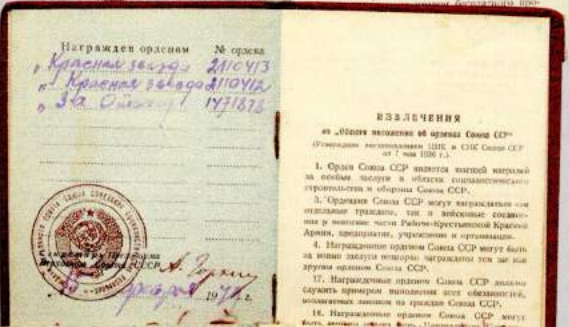 Награжден орденом № ордена
"Красная звезда 2110413
"Красная звезда 2110412
" За 1471878
Верховного СССР А. Горкин
19 г.
ИЗВЛЕЧЕНИЯ
из „Общего положения об орденах Союза ССР“
(Утверждено постановлением ЦИК и СНК Союза ССР
от 7 мая 1936 г.).
1. Орден Союза ССР является высшей наградой
за особые заслуги в области социалистического
строительства и обороны Союза ССР.
3. Орденами Союза ССР могут награждаться как
отдельные граждане, так и войсковые соедине-
ния и воинские части Рабоче-Крестьянской Красной
Армии, предприятия, учреждения и организации.
4. Награжденные орденом Союза ССР могут быть
за новые заслуги вторично награждены тем же или
другим орденом Союза ССР.
17. Награжденные орденом Союза ССР должны
служить примером выполнения всех обязанностей,
возлагаемых законом на граждан Союза ССР.
18. Награжденные орденом Союза ССР могут
быть лишены